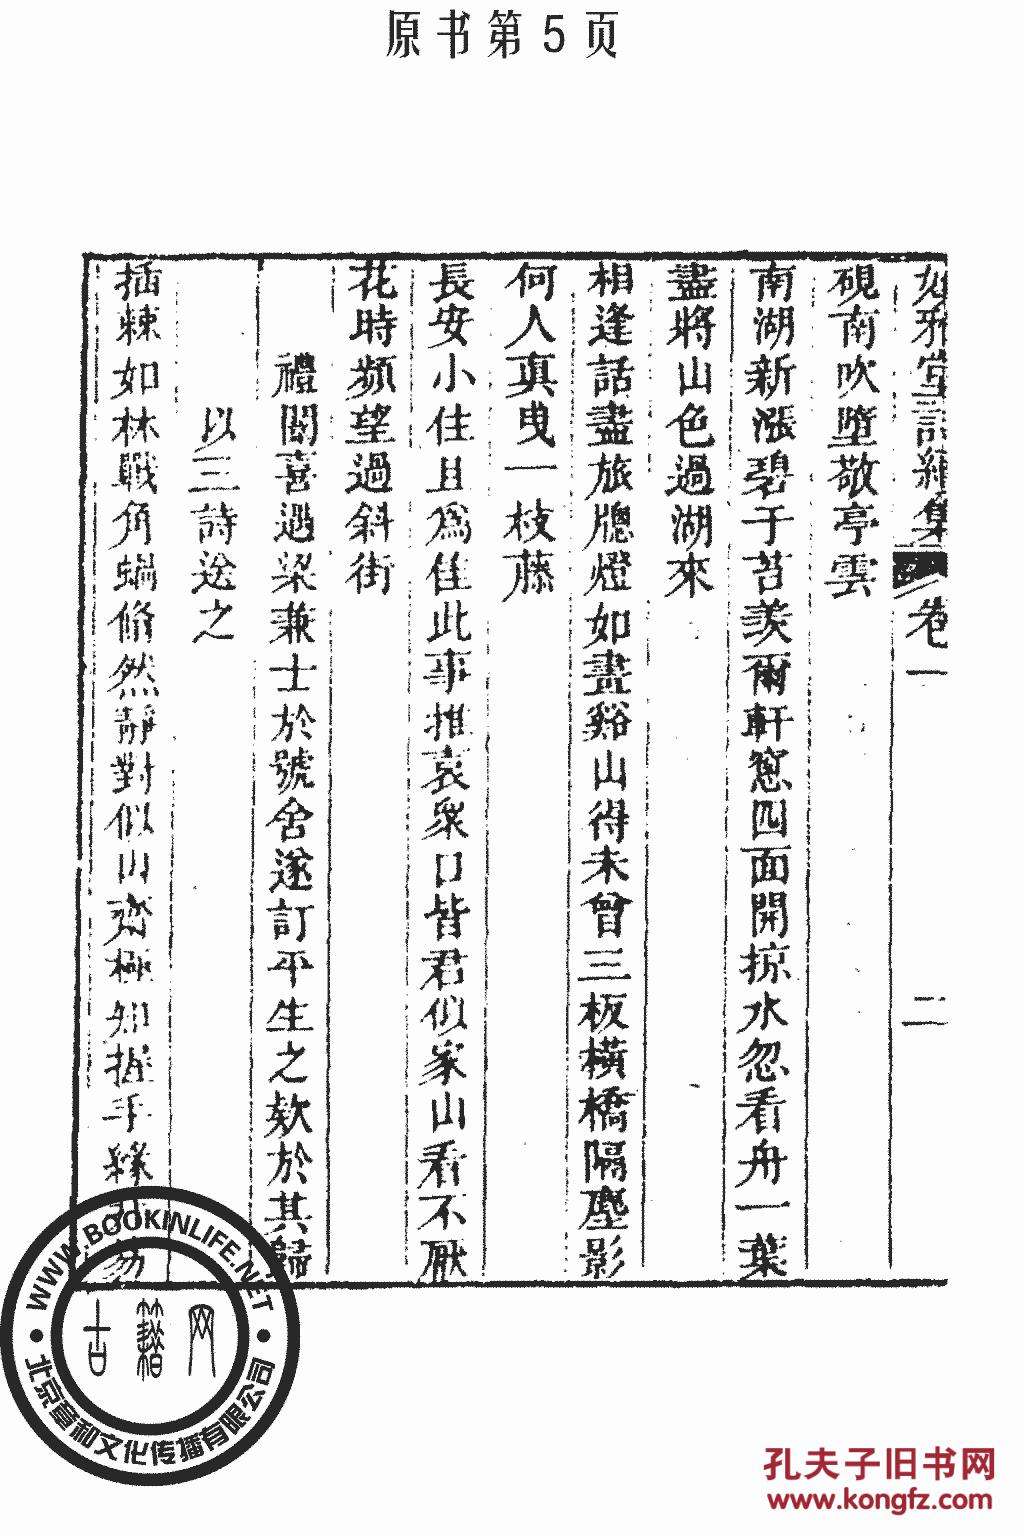 原书第5页
如雅堂詩續集 卷一 二
硯南吹墮敬亭雲
南湖新漲碧于苔羨爾軒窻四面開掠水忽看舟一葉
盡將山色過湖來
相逢話盡旅牕燈如畫谿山得未曾三板橫橋隔塵影
何人真曳一枝藤
長安小住且爲佳此事推袁衆口皆君似家山看不厭
花時頻望過斜街
禮闈喜遇梁兼士於號舍遂訂平生之歡於其歸
以三詩送之
插棘如林戰角蝸翛然靜對似山齋極知握手緣
WWW.BOOKINLIFE.NET
古籍网
北京章和文化传播有限公司
孔夫子旧书网
www.kongfz.com